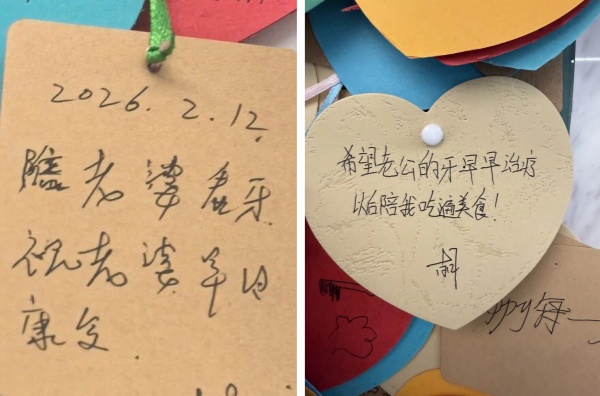 2026.2.12
陪老婆看牙
祝老婆早日
康复.
希望老公的牙早早治疗
以后陪我吃遍美食!